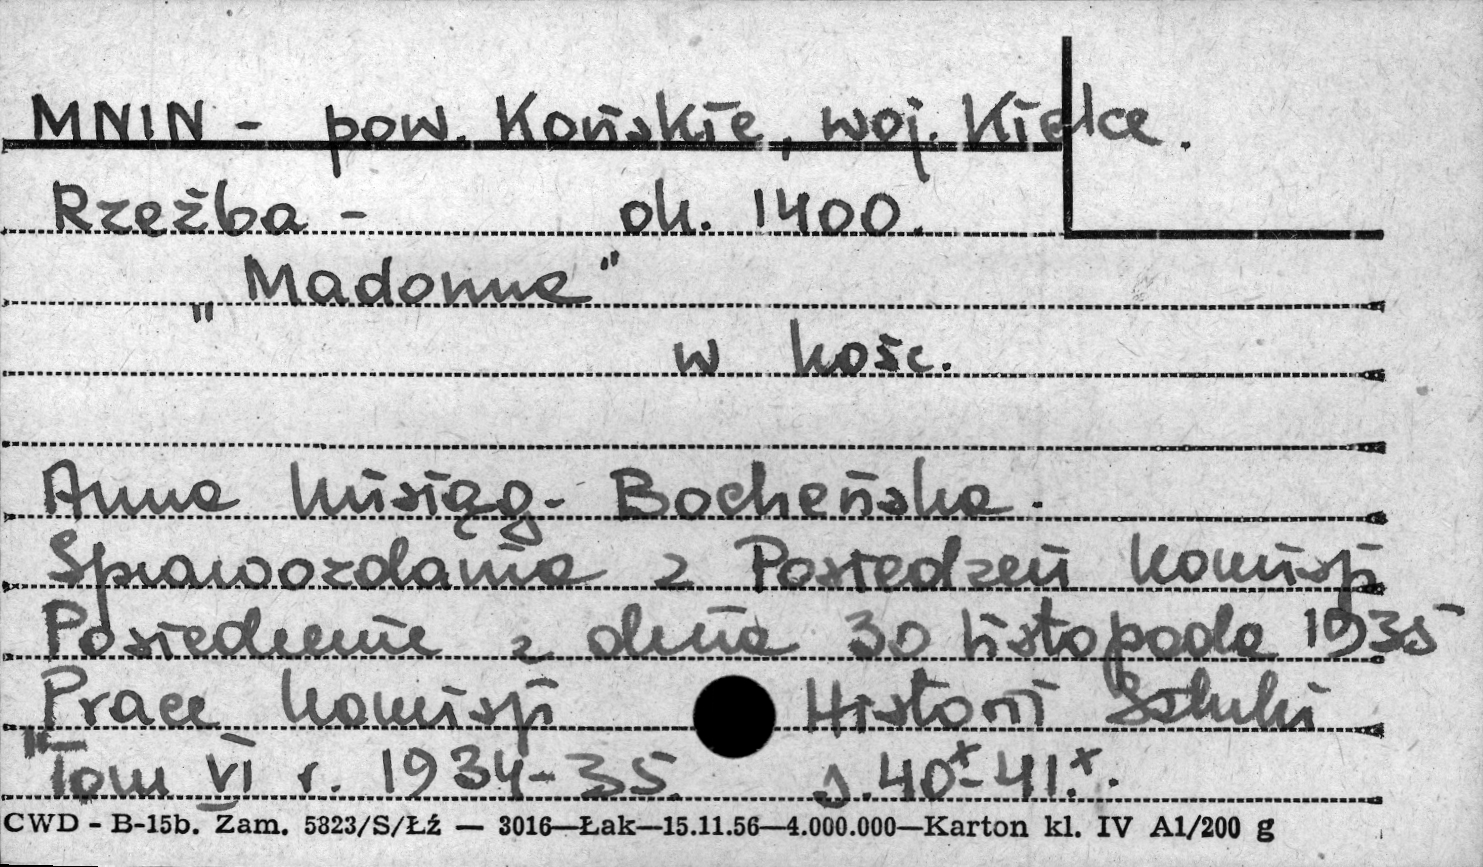 MNIN - pow. Końskie, woj. Kielce.
Rzeźba - ok. 1400.
"Madonna"
w kośc.
Anna Misiąg-Bocheńska.
Sprawozdania z Posiedzeń Komisji
Posiedzenie z dnia 30 listopada 1935
Prace Komisji Historii Sztuki
"Tom VI r. 1934-35. s. 40x-41x.
CWD - B-15b. Zam. 5823/S/Łź — 3016—Łak—15.11.56—4.000.000—Karton kl. IV A1/200 g